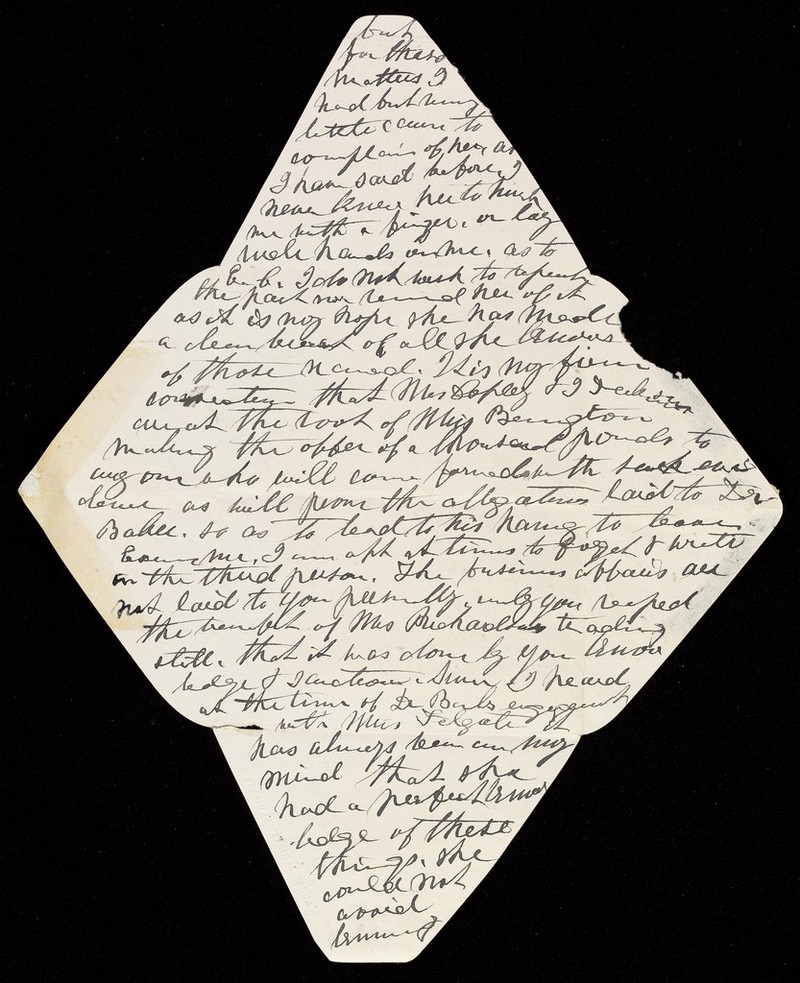 but
for these
matters I
had but very
little cause to
complain of her, as
I have said before, I
never knew her to touch
me with a finger, or lay
rude hands on me. as to
E. C. I do not wish to repeat
the past nor remind her of it
as it is my hope she has made
a clean breast of all she knows
of those named. It is my firm
conviction that Mrs Copley & I
are at the root of Miss
making the offer of a thousand pounds to
any one who will come forward with such evi
dence as will prove the allegations laid to Dr
Baker. so as to lead to his having to leave.
Excuse me, I am apt at times to forget & write
in the third person. The business affairs are
not laid to you personally, only you reaped
the benefit of Mrs Richardsons trading
still, that it was done by your know
ledge & sanction. Since I heard
at the time of Dr engagement
with Miss Felgate it
has always been on my
mind that she
had a perfect know
ledge of these
things, she
could not
avoid
knowing